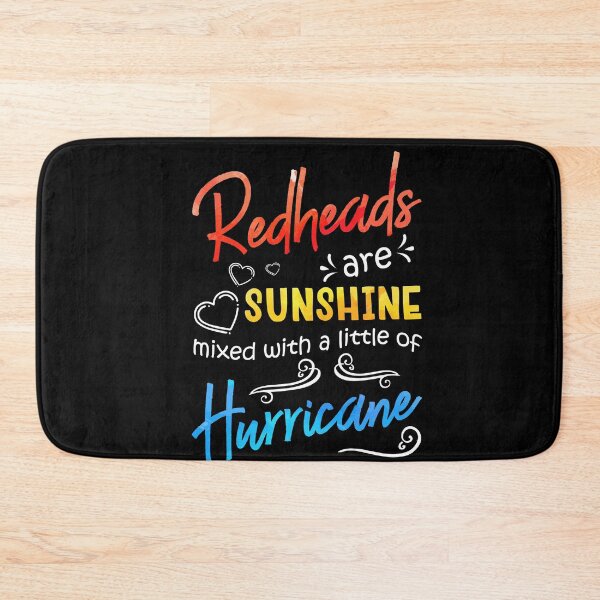 Redheads
are
SUNSHINE
mixed with a little of
Hurricane